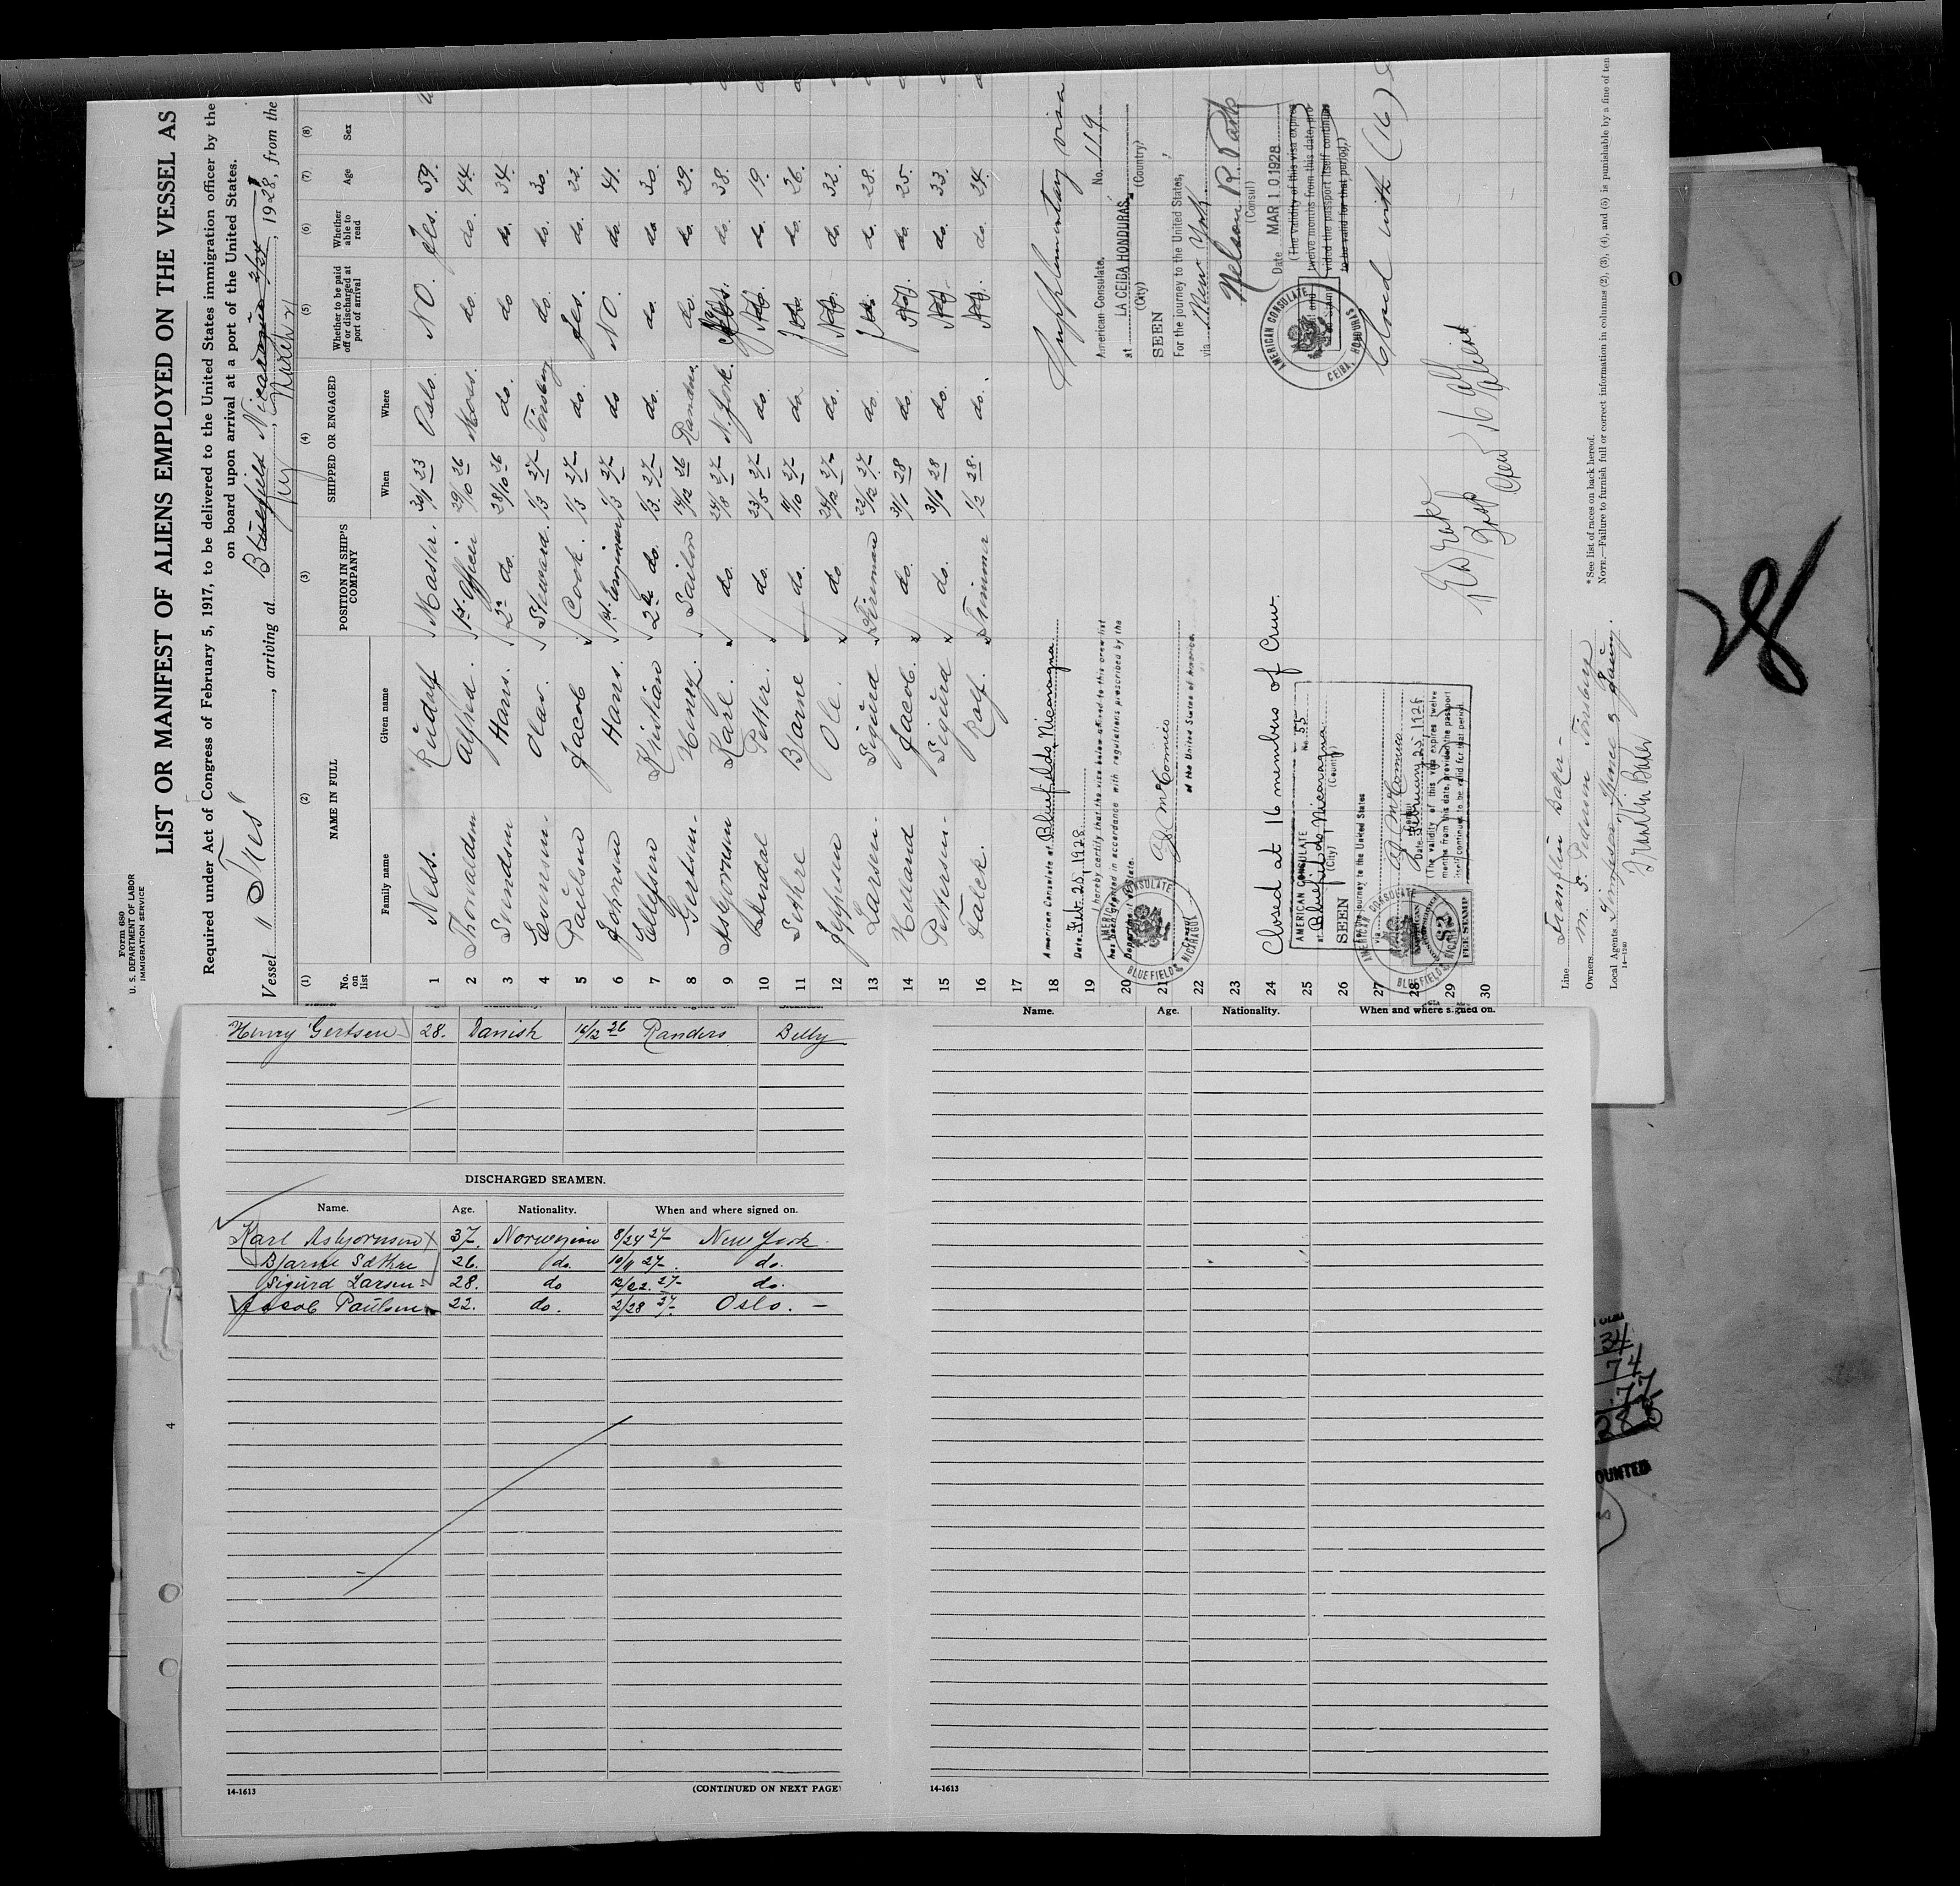 Form 680
U. S. DEPARTMENT OF LABOR
IMMIGRATION SERVICE
LIST OR MANIFEST OF ALIENS EMPLOYED ON THE VESSEL AS
Required under Act of Congress of February 5, 1917, to be delivered to the United States immigration officer by the
on board upon arrival at a port of the United States.
Vessel "Tres", arriving at Bluefield Nicaragua, 1928, from the
March 21
(1) (2) (3) (4) (5) (6) (7) (8)
No. on list NAME IN FULL POSITION IN SHIP'S COMPANY SHIPPED OR ENGAGED Whether to be paid off or discharged at port of arrival Whether able to read Age Sex
Family name Given name When Where
1 Ness. Rudolf Mastr. 30/1 23 Oslo. NO. Yes. 59.
2 Thonaldsen Alfred. 1st Officer 29/10 26 Moss. do. do. 44.
3 Svendsen Hans. 2n do. 28/10 26 do. do do. 34.
4 Evensen. Olav. Steward. 1/3 27 Tönsberg do. do. 30.
5 Paulsen Jacob Cook. 1/3 27 do. Yes. do. 22.
6 Johnsen Hans. 1st Engineer 1/3 27 do NO. do. 41.
7 Ellefsen Kristian 2n do. 1/3. 27 do. do. do 30.
8 Gertsen. Henry. Sailor 14/12 26 Randers do. do. 29.
9 Asbjornsen Karl. do. 24/8 27 N.York. Yes. do. 38.
10 Petter. do. 23/5 27 do. do. 19.
11 Sethre Bjarne do. 11/10 27 do. do. do. 26.
12 Jeppesen Ole. do 24/12 27 do. do. 32.
13 Larsen. Sigurd Fireman 22/12 27 do. do. do. 28.
14 Jacob. do. 31/1 28 do. do. 25.
15 Pettersen. Sigurd do. 31/1 28 do. do. 33.
16 Falck. Ralf. Trimmer 1/2 28. do. do. 24.
17
18
19
20
21
22
23
24
25
26
27
28
29
30
American Consulate at Bluefields, Nicaragua
Date Feb. 25, 1928
I hereby certify that the visa below affixed to this crew list
has been granted in accordance with regulations prescribed by the
Department of State.
Consul of the United States of America.
AMERICAN CONSULATE
BLUEFIELDS, NICARAGUA
Closed at 16 members of Crew.
AMERICAN CONSULATE No. 55
at Bluefields, Nicaragua
(City) (Country)
SEEN
For the journey to the United States
via
Date February 25, 1928
(The validity of this visa expires twelve
months from this date, provided the passport
itself continues to be valid for that period.
FEE STAMP
Supplementary visa
American Consulate, No. 119
at LA CEIBA HONDURAS.
(City) (Country)
SEEN
For the journey to the United States,
via New York
Nelson R. Park
(Consul)
Date MAR 10 1928
(The validity of this visa expires
twelve months from this date, pro-
vided the passport itself continues
to be valid for that period.)
AMERICAN CONSULATE
CEIBA, HONDURAS
Closed with (16)
Crew 16
Line Franklin Baker
Owners M. S. Pedersen Tönsberg
Local Agents
Franklin Baker
14-1240
* See list of races on back hereof.
NOTE.—Failure to furnish full or correct information in columns (2), (3), (4), and (5) is punishable by a fine of ten
Henry Gertsen 28. Danish 14/12 26 Randers Belly
DISCHARGED SEAMEN.
Name. Age. Nationality. When and where signed on.
Karl Asbjornsen 37. Norwegian 8/24 27 New York.
Bjarne Sethre 26. do. 10/11 27. do.
Sigurd Larsen 28. do 12/22. 27 do.
Jacob Paulsen 22. do. 2/28 27. Oslo.
14-1613 (CONTINUED ON NEXT PAGE)
Name. Age. Nationality. When and where signed on.
14-1613
4